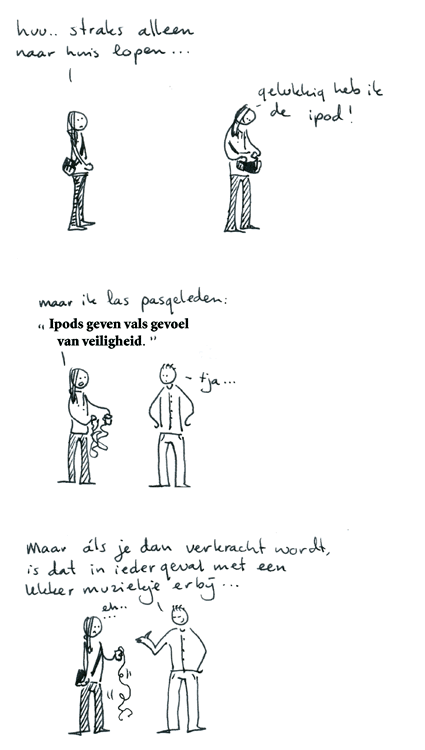 huu.. straks alleen
naar huis lopen...
gelukkig heb ik
de ipod!
maar ik las pasgeleden:
„ Ipods geven vals gevoel
van veiligheid. ”
tja...
Maar áls je dan verkracht wordt,
is dat in ieder geval met een
lekker muziekje erbij...
eh..
...